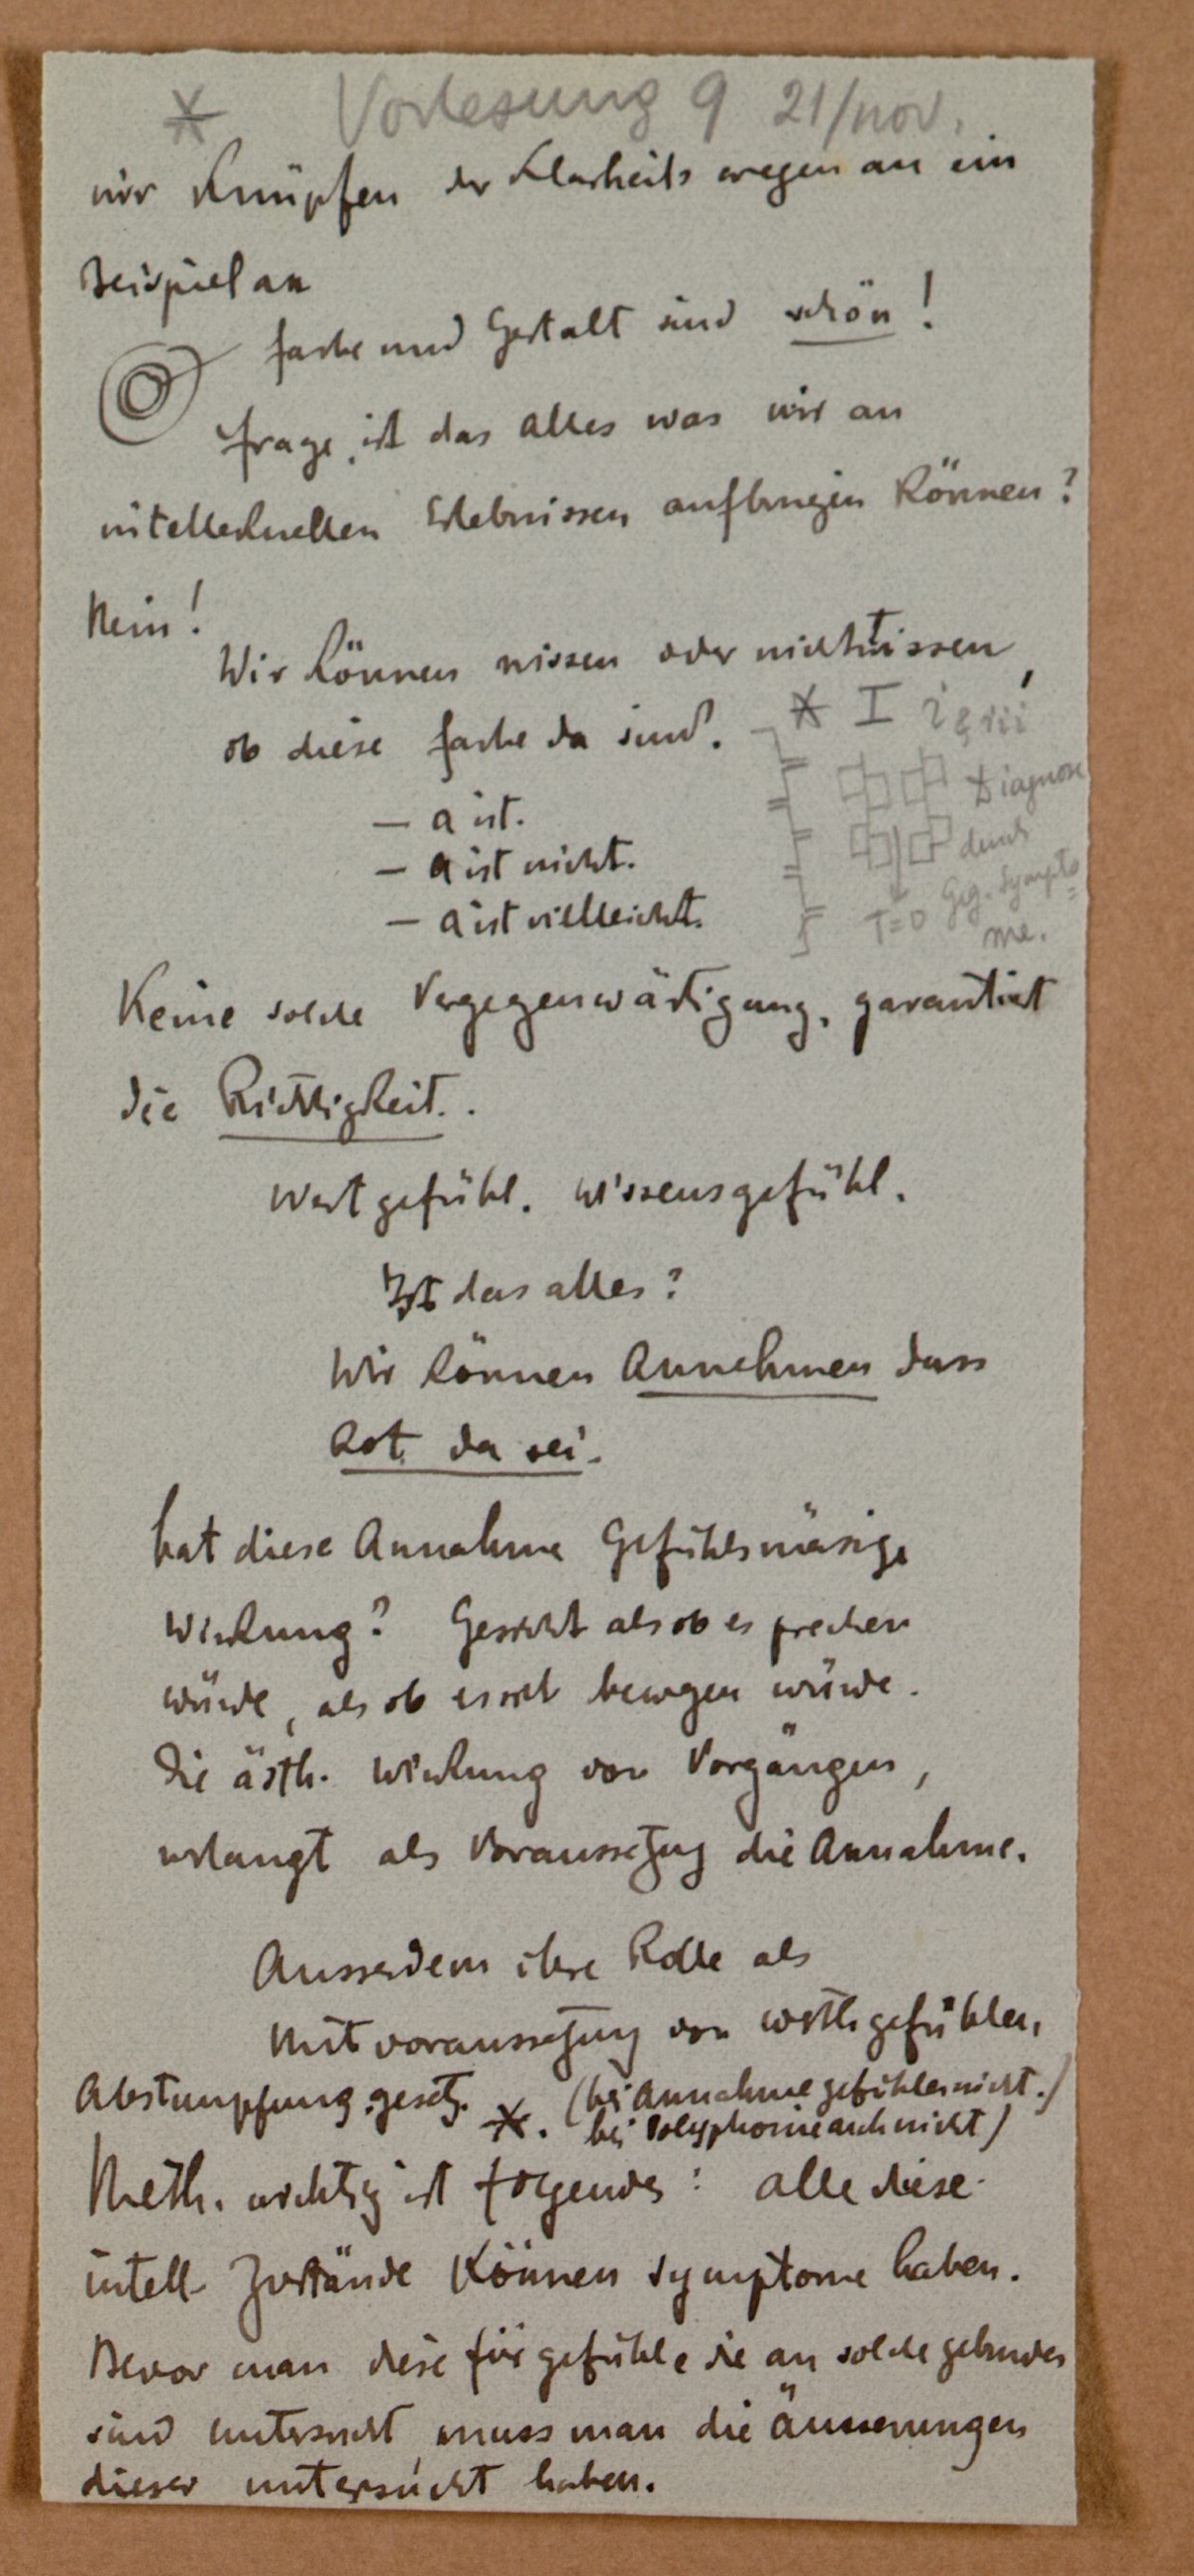 * Vorlesung 9 21/nov.
wir knüpfen der Klarheits wegen an ein
Beispiel an
Farbe und Gestalt sind schön!
Frage, ist das alles was wir an
intellektuellen Erlebnissen aufbringen können?
Nein!
Wir können wissen oder nicht wissen,
ob diese Farbe da sind.
* I
Diagnose
durch
T=0 Geg. Sympto
me.
– a ist.
– a ist nicht.
– a ist vielleicht.
Keine solche Vergegenwärtigung, garantiert
die Richtigkeit..
Wertgefühl. Wissensgefühl.
Ist das alles?
Wir können Annehmen dass
Rot da sei.
hat diese Annahme Gefühlsmäsige
Wirkung? Gesicht als ob es sprechen
würde, als ob es sich bewegen würde.
Die ästh. Wirkung von Vorgängen,
verlangt als Voraussetzung die Annahme.
Ausserdem ihre Rolle als
Mitvoraussetzung von Werthgefühlen,
Abstumpfungsgesetz. *. (bei Annahmegefühlen nicht.)
bei Polyphonie auch nicht)
Meth. wichtig ist folgendes: alle diese
intell. Zustände können Symptome haben.
Bevor man diese für Gefühle die an solche gebunden
sind untersucht, muss man die Äusserungen
dieser untersucht haben.